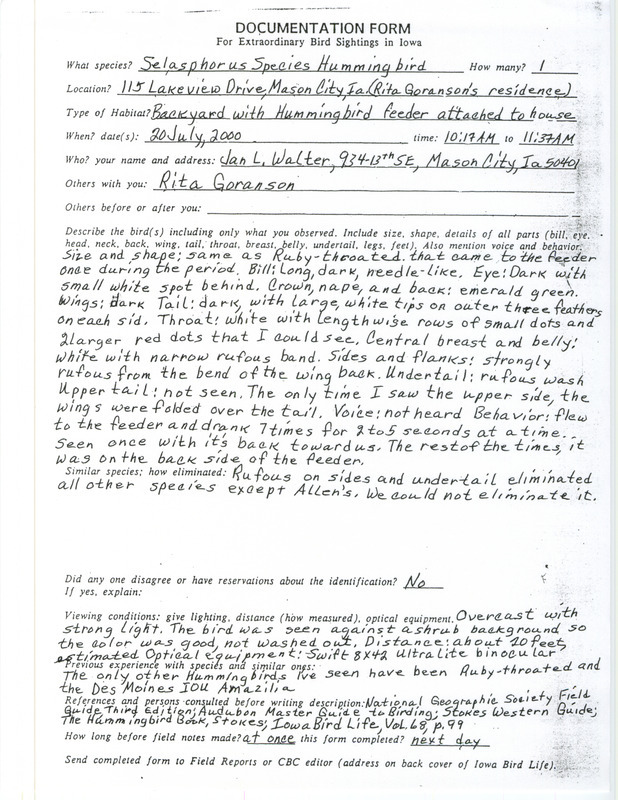 DOCUMENTATION FORM
For Extraordinary Bird Sightings in Iowa
What species? Selasphorus Species Hummingbird How many? 1
Location? 115 Lakeview Drive, Mason City, Ia. (Rita Goranson's residence)
Type of Habitat? Backyard with Hummingbird feeder attached to house
When? date(s): 20 July, 2000 time: 10:17 AM to 11:37 AM
Who? your name and address: Jan L. Walter, 934-13th SE, Mason City, Ia 50401
Others with you: Rita Goranson
Others before or after you:
Describe the bird(s) including only what you observed. Include size, shape, details of all parts (bill, eye,
head, neck, back, wing, tail, throat, breast, belly, undertail, legs, feet). Also mention voice and behavior.
Size and shape; same as Ruby-throated that came to the feeder
once during the period. Bill: Long, dark, needle-like. Eye: Dark with
small white spot behind. Crown, nape, and back: emerald green.
Wings: dark Tail: dark, with large, white tips on outer three feathers
on each sid. Throat: white with lengthwise rows of small dots and
2 larger red dots that I could see. Central breast and belly:
white with narrow rufous band. Sides and flanks: strongly
rufous from the bend of the wing back. Undertail: rufous wash
Upper tail: not seen. The only time I saw the upper side, the
wings were folded over the tail. Voice: not heard Behavior: flew
to the feeder and drank 7 times for 2 to 5 seconds at a time.
Seen once with it's back toward us. The rest of the times, it
was on the back side of the feeder.
Similar species; how eliminated: Rufous on sides and undertail eliminated
all other species except Allen's. We could not eliminate it.
Did any one disagree or have reservations about the identification? No
If yes, explain:
Viewing conditions: give lighting, distance (how measured), optical equipment. Overcast with
strong light. The bird was seen against a shrub background so
the color was good, not washed out. Distance: about 20 feet,
estimated Optical equipment: Swift 8x42 Ultra Lite binocular
Previous experience with species and similar ones:
The only other Hummingbirds I've seen have been Ruby-throated and
the Des Moines IOU Amazilia
References and persons consulted before writing description: National Geographic Society Field
Guide Third Edition; Audubon Master Guide to Birding; Stokes Western Guide;
The Hummingbird Book, Stokes; Iowa Bird Life, Vol. 68, p. 99
How long before field notes made? at once this form completed? next day
Send completed form to Field Reports or CBC editor (address on back cover of Iowa Bird Life).